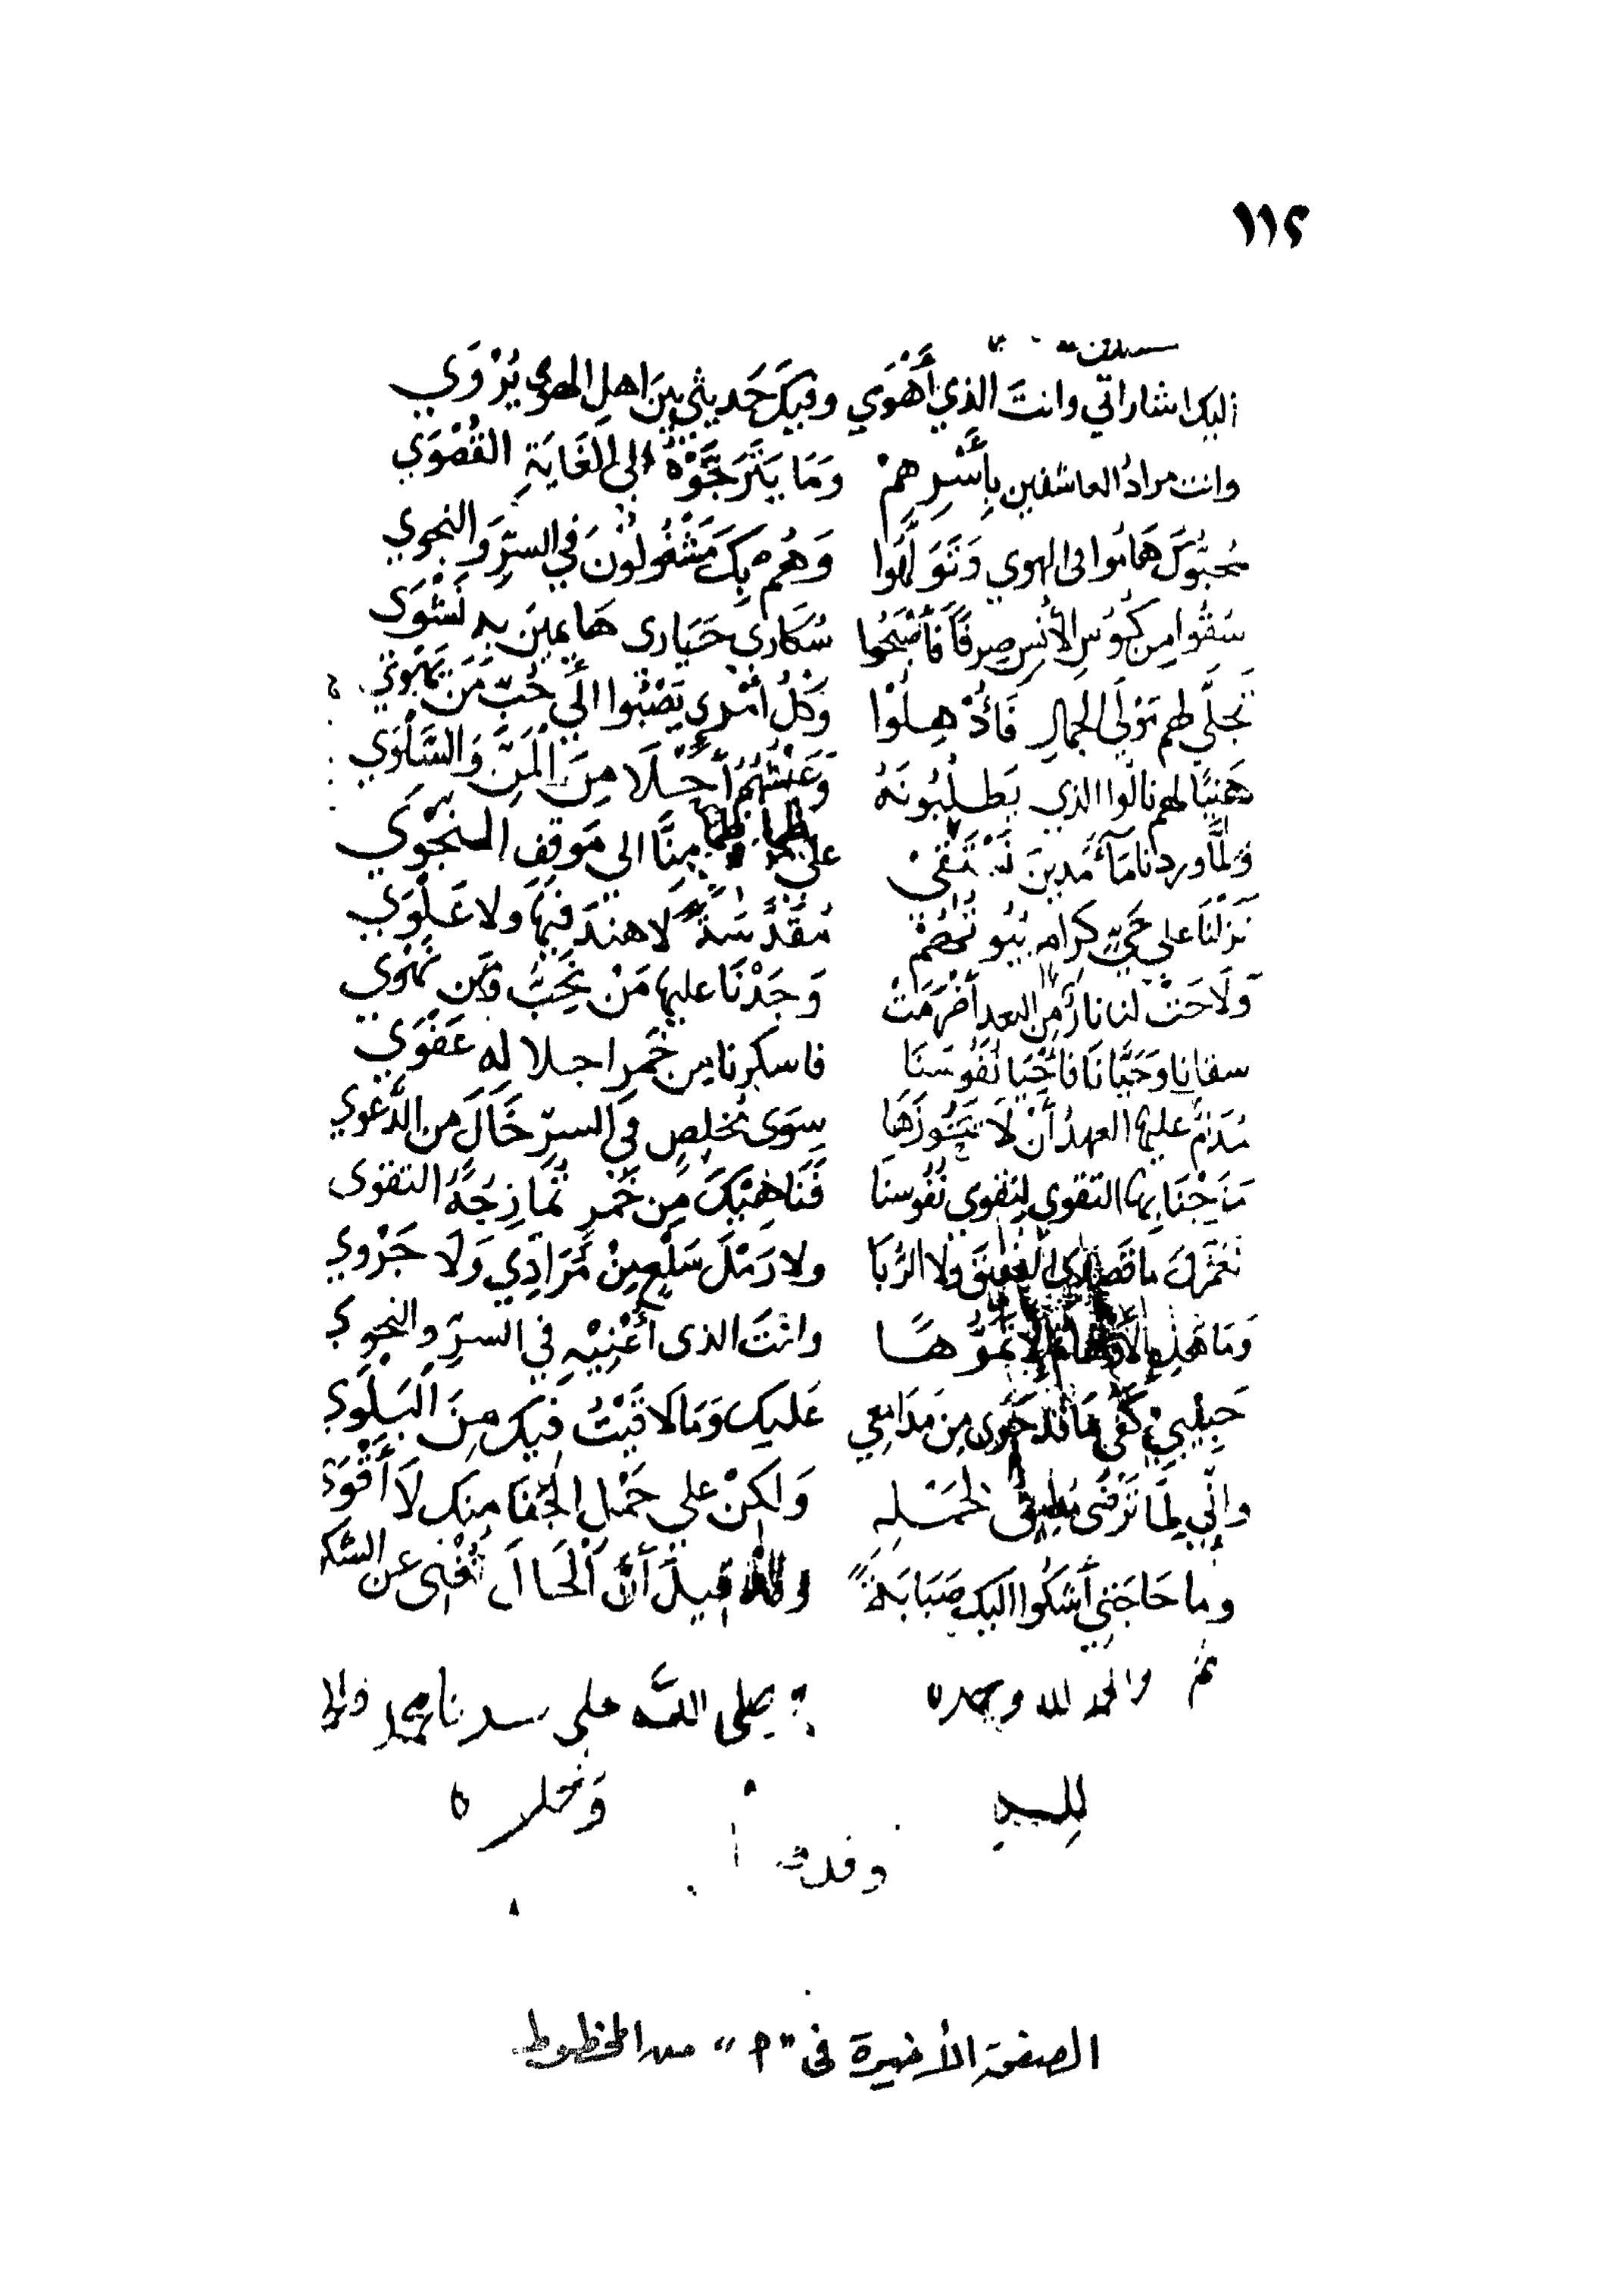 ١١٢
اليك اشاراتي وانتَ الذي أَهْوَي وفيكَ حَديثي بينَ اهلِ الهوي يُرْوَي
وانت مرادُ العاشقين بِأَسْرِهِمْ وَمَا يَتَرَجَّوْهُ الى الغَايَةِ القُصْوَي
مُحِبُّوكَ هَامُوا في الهوي وَتَوَلَّهُوا وَهُمْ بِكَ مَشْغُولُونَ في السرِّ وَالنجوي
سُقُوا مِن كُؤُسِ الأُنسِ صِرفًا فَأَصْبَحُوا سُكَارى حَيَارى هَايمينَ به نَشْوَى
تجلّي لهم مَولَي الجمالِ فَأُذْهِلُوْا وَكلُّ امْرِئٍ يَصْبُوا الَي حُبِّ مَن يَهْوَي
هَنِيًا لهم نالُوا الذي يَطلُبُونَهُ وَعَيْشُهُمُ أَحْلَا مِنَ المَنِّ وَالسَّلْوَي
وَلمَّا وردنا مَآءَ مَدينَ نَسْتَقي على ظما منَّا الى مَوقِفِ النجْوَي
نَزلْنَا على حَيٍّ كرامٍ بُيُوتُهُمْ مُقَدَّسَةً لا هندَ فيهَا ولا عَلْوَي
وَلَاحَتْ لنا نارٌ مِن البعد أُضْرِمَتْ وَجَدْنَا عليها مَنْ نُحِبُّ وَمَن نَهْوَي
سقانا وَحَيَّانَا فأَحْيَا نُفُوسَنَا فاسكرنا من خَمرِ اجلاله عَفْوَي
مُدَامٌ عليها العهدُ أَنْ لَا يَنُوزَهَا سِوَى مُخلِصٍ في السرِّ خَالَ من الدَّعْوي
مَزَجْنَا بها التقوي لِتقوي نُفُوسنَا فَنَاهِيْكَ مِن خَمرٍ تُمَازِجُهُ التقوى
تغَزلت ما قَصدي العقيق ولا الرُّبَا ولا رَمْلَ سَلْعٍ مِنْ مُرَادِي وَلَا حَزْوي
وَمَا وانْتَ الذى أَعْنِيْهِ في السرِّ والنجوي
حَبِيْبِيْ كَفَى مَا قَد جَرَى مِن مَدَامِعي عَليك وَمَا لَاقَيْتُ فيك مِنَ البَلْوَي
وانّي لِمَا تَرْضَى مُطيقٌ لحَمْلِهِ وَلكنْ على حَمْلِ الجَفَا مِنك لَا أَقْوَى
وما حَاجَتي أَشْكُوا اليك صَبَابَةً وقد قيلَ أنَّ الْحَالَ تُغْني عن الشك
تم والحمد لله وحده وصلى الله على سيدنا محمد واله
الصفحة الأخيرة فى "م" من المخطوط